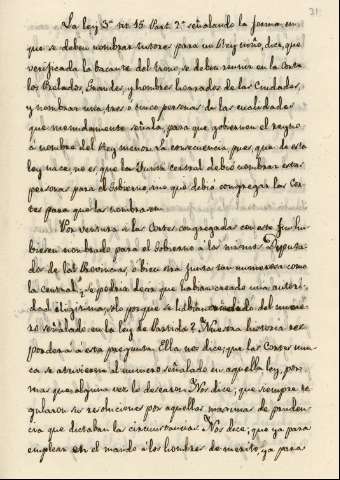 31
La ley 3ª tit 15 Part. 2ª señalando la forma en
que se deben nombrar tutores para un Rey niño, dice, que
verificada la bacante del trono, se deben reunir en la Corte
los Prelados, Grandes, y hombres honrados de las Ciudades,
y nombrar una, tres ó cinco personas de las cualidades
que menudamente señala, para que gobiernen el reyno
á nombre del Rey menor. La consecuencia, pues, que de esta
ley nace, no es que la Junta central debió nombrar estas
personas para el Gobierno, sino que debió congregar las Cor-
tes para que las nombrasen.
Por ventura si las Cortes congregadas con este fin hu-
biesen nombrado para el Gobierno á los mismos Diputa-
dos de las Provincias, ó bien otra Junta tan numerosa como
la central, se podría decir que habían creado una autori-
dad ilegítima, sólo porque se habían del núme-
ro señalado en la ley de Partida? Nuestra historia res-
ponderá á esta pregunta. Ella nos dice, que las Cortes nun-
ca se atrevieron al número señalado en aquella ley, por
mas que alguna vez lo desearon. Nos dice, que siempre re-
gularon sus resoluciones por aquellas maximas de pruden-
cia que dictaban las circunstancias. Nos dice, que ya para
emplear en el mando á los hombres de merito, ya para